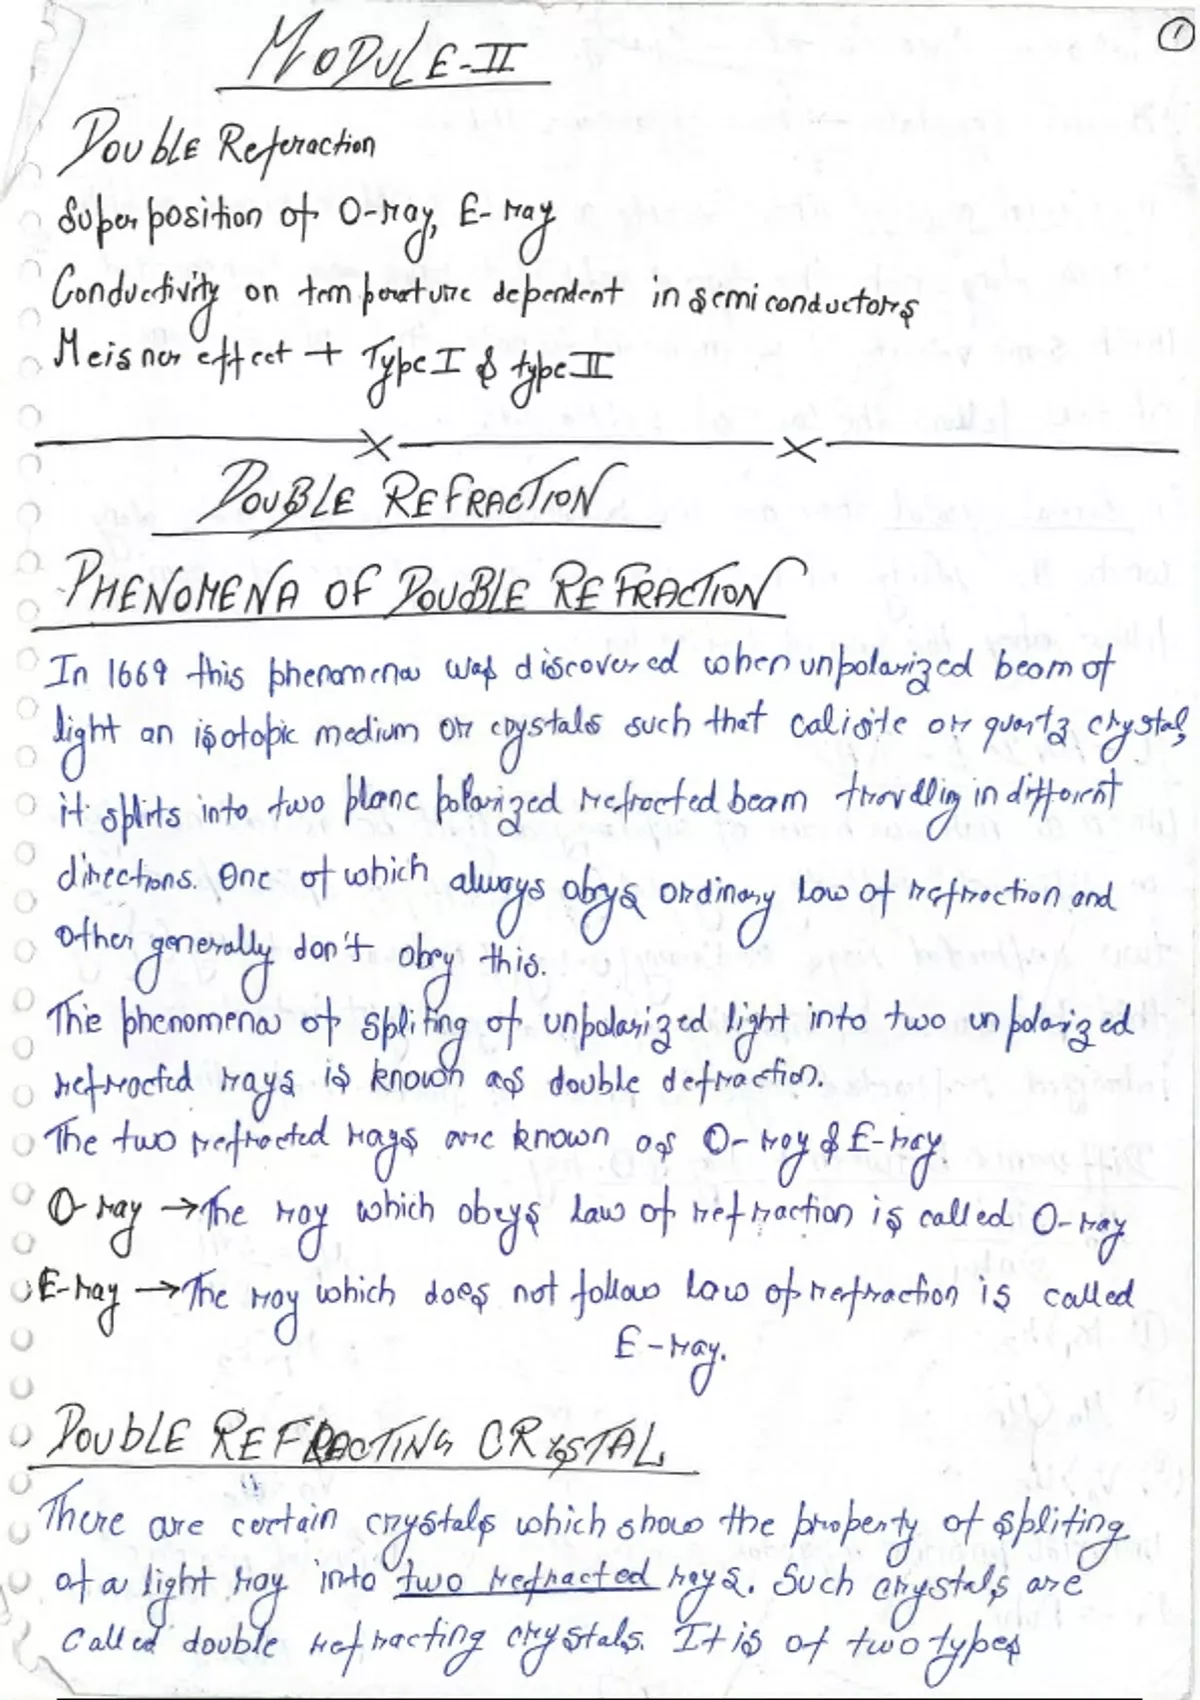 1
MODULE-II
Double Referaction
Superposition of O-ray, E-ray
Conductivity on temperature dependent in semiconductors
Meisner effect + Type I & type II
DOUBLE REFRACTION
PHENOMENA OF DOUBLE REFRACTION
In 1669 this phenomena was discovered when unpolarized beam of
light an isotopic medium or crystals such that calisite or quartz crystal,
it splits into two plane polarized refracted beam travdllig in different
directions. One of which always obeys ordinary law of refraction and
other generally don't obey this.
The phenomena of spliting of unpolarized light into two unpolarized
refracted rays is known as double defraction.
The two refracted rays are known as O-ray & E-ray.
O-ray → The ray which obeys law of refraction is called O-ray
E-ray → The ray which does not follow law of refraction is called
E-ray.
DOUBLE REFRACTING CRYSTAL
There are certain crystals which show the property of spliting
of a light ray into two refracted rays. Such crystals are
called double refracting crystals. It is of two types